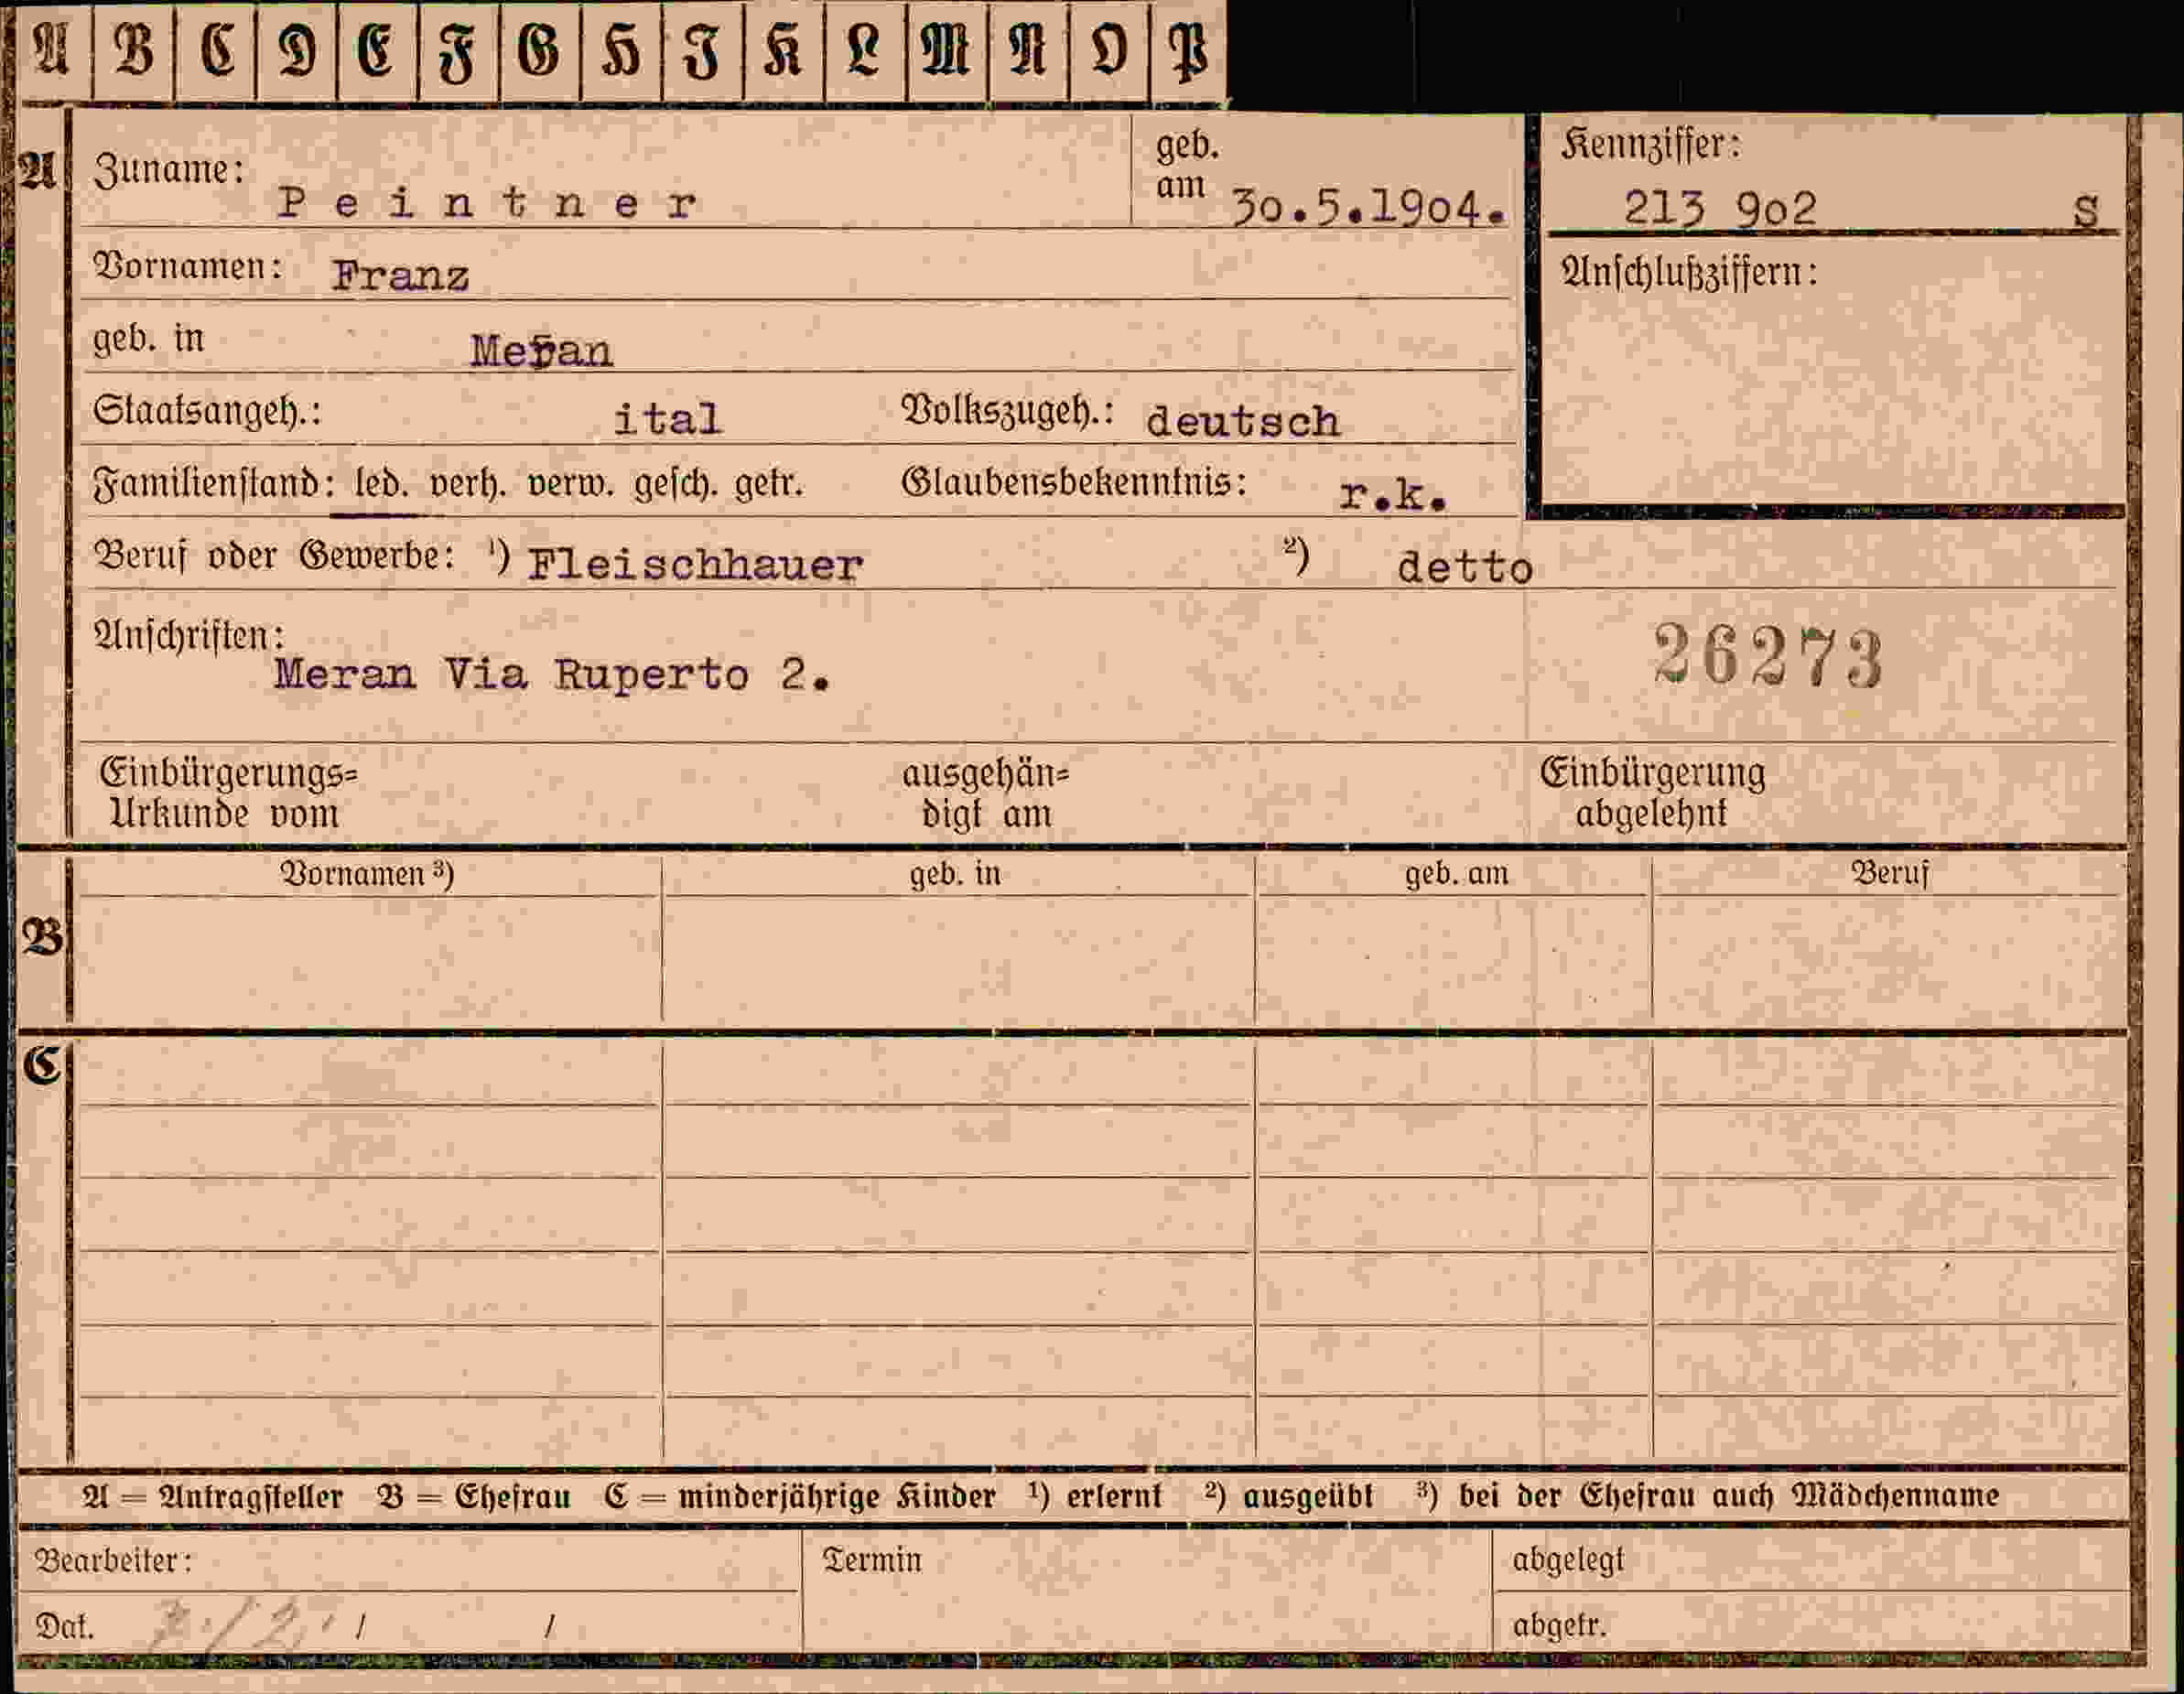 A B C D E F G H I K L M N O P
A Zuname: Peintner geb. am 30.5.1904. Kennziffer: 213 902 S
Vornamen: Franz Anschlußziffern:
geb. in Meran
Staatsangeh.: ital Volkszugeh.: deutsch
Familienstand: led. verh. verw. gesch. getr. Glaubensbekenntnis: r.k.
Beruf oder Gewerbe: ¹) Fleischhauer ²) detto
Anschriften: 26273
Meran Via Ruperto 2.
Einbürgerungs= ausgehän= Einbürgerung
Urkunde vom digt am abgelehnt
Vornamen ³) geb. in geb. am Beruf
B
C
A = Antragsteller B = Ehefrau C = minderjährige Kinder ¹) erlernt ²) ausgeübt ³) bei der Ehefrau auch Mädchenname
Bearbeiter: Termin abgelegt
Dat. / / abgetr.